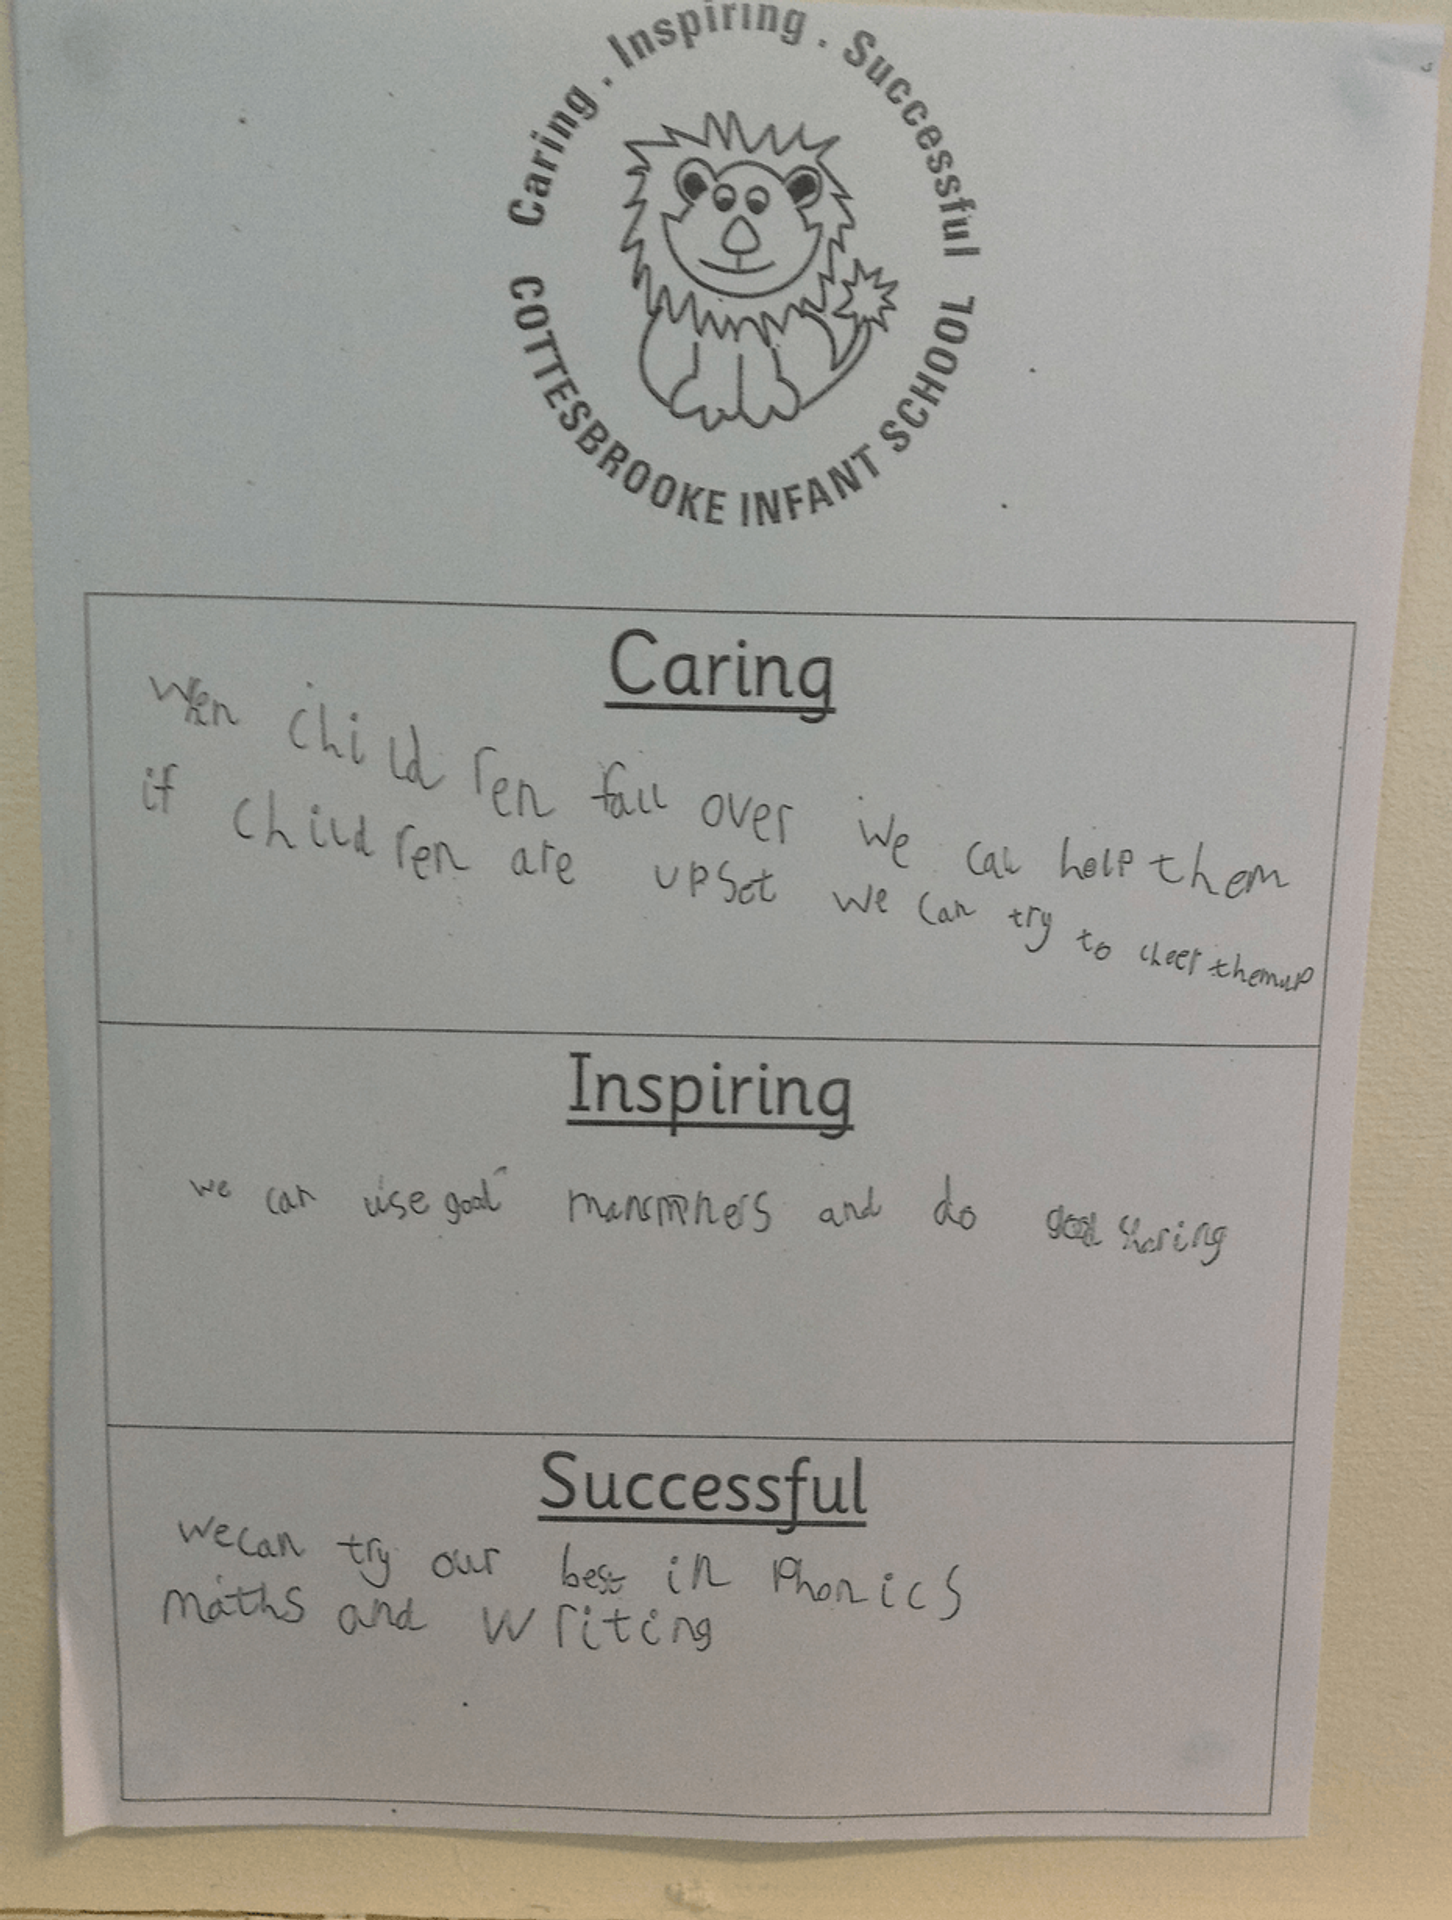 Caring . Inspiring . Successful
COTTESBROOKE INFANT SCHOOL
Caring
When children fall over we can help them
if children are upset we can try to cheer them up
Inspiring
we can use good and do good sharing
Successful
we can try our best in Phonics
maths and writing